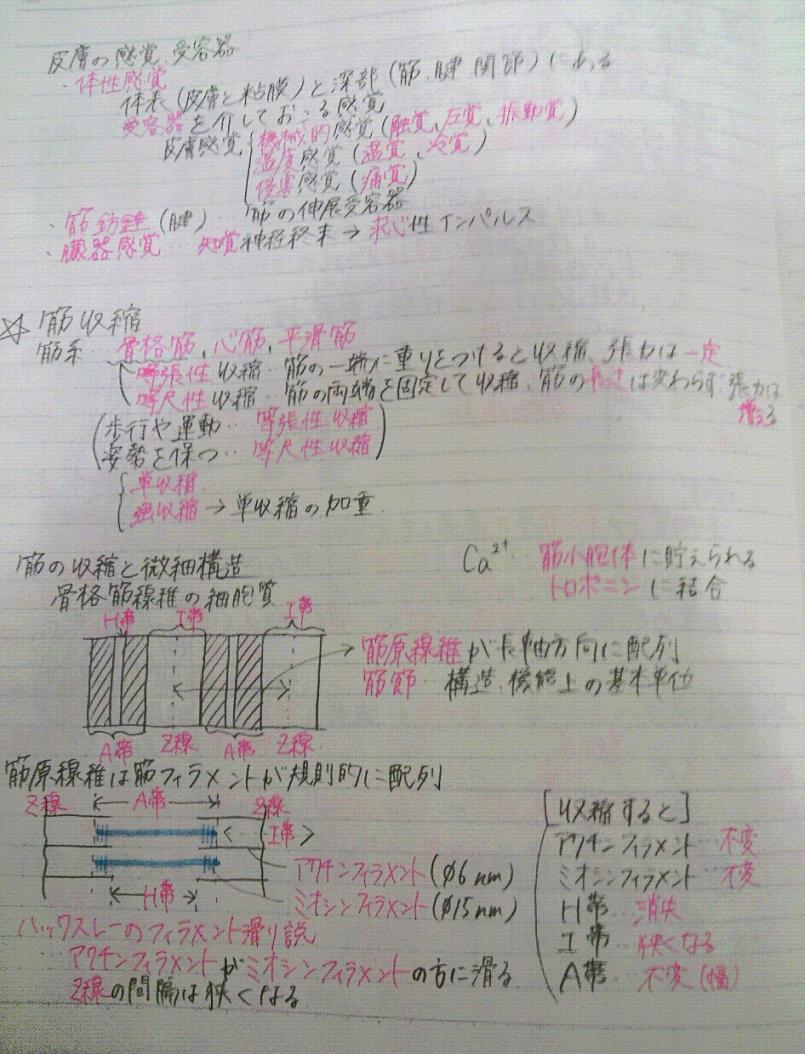 皮膚の感覚、受容器
・体性感覚
体表(皮膚と粘膜)と深部(筋、腱、関節)にある
受容器を介しておこる感覚
皮膚感覚 機械的感覚(触覚、圧覚、振動覚)
温度感覚(温覚、冷覚)
侵害感覚(痛覚)
・筋紡錘(腱) … 筋の伸展受容器
・臓器感覚 … 知覚神経終末→求心性インパルス
☆筋収縮
筋系…骨格筋、心筋、平滑筋
等張性収縮…筋の一端に重りをつけると収縮、張力は一定
等尺性収縮…筋の両端を固定して収縮、筋の長さは変わらず張力は
増える
(歩行や運動…等張性収縮
姿勢を保つ…等尺性収縮)
単収縮
強収縮→単収縮の加重
筋の収縮と微細構造
Ca²⁺…筋小胞体に貯えられる
トロポニンに結合
骨格筋線維の細胞質
H帯 I帯 I帯
筋原線維が長軸方向に配列
筋節…構造、機能上の基本単位
A帯 Z線 A帯 Z線
筋原線維は筋フィラメントが規則的に配列
Z線 A帯 Z線
I帯
アクチンフィラメント(Φ6nm)
ミオシンフィラメント(Φ15nm)
H帯
[収縮すると]
アクチンフィラメント…不変
ミオシンフィラメント…不変
H帯…消失
I帯…狭くなる
A帯…不変(幅)
ハックスレーのフィラメント滑り説
アクチンフィラメントがミオシンフィラメントの方に滑る
Z線の間隔は狭くなる